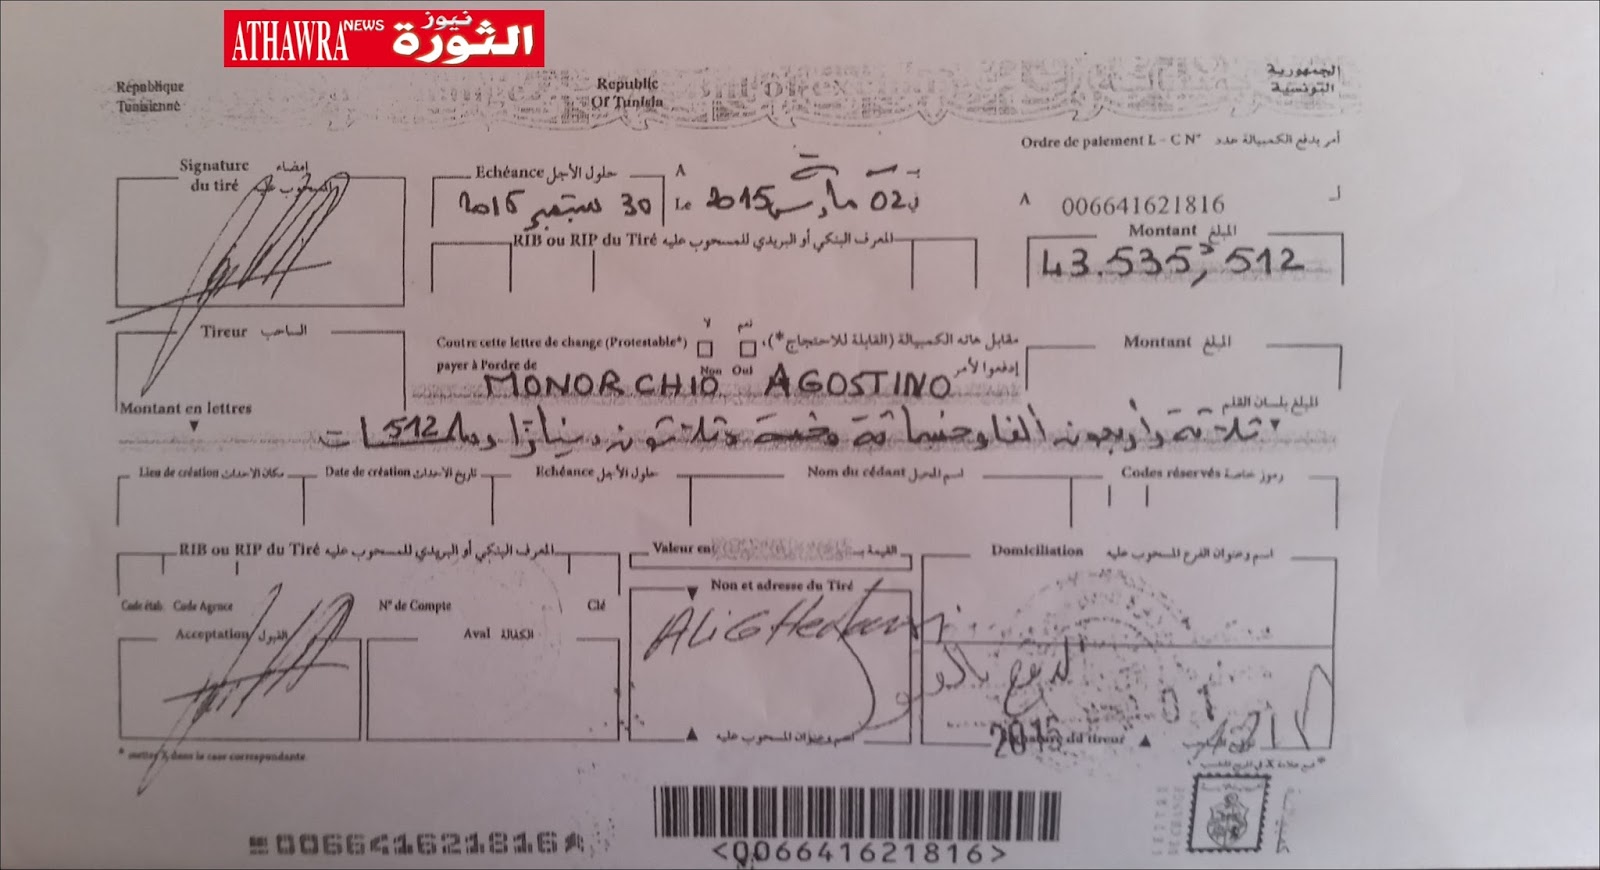 ATHAWRA NEWS الثورة نيوز
République Tunisienne
Republic Of Tunisia
الجمهورية التونسية
Ordre de paiement L - C N° أمر بدفع الكمبيالة عدد
Signature du tiré إمضاء المسحوب عليه
Echéance حلول الأجل
30 سبتمبر 2015
A
Le 2015 مارس 02
A 006641621816 لـ
RIB ou RIP du Tiré المعرف البنكي أو البريدي للمسحوب عليه
Montant المبلغ
43.535,512
Tireur الساحب
Contre cette lettre de change (Protestable*) لا نعم مقابل هاته الكمبيالة (القابلة للاحتجاج*)،
payer à l'ordre de Non Oui إدفعوا لأمر
MONORCHIO AGOSTINO
Montant المبلغ
Montant en lettres المبلغ بلسان القلم
ثلاثة وأربعون ألفا وخمسمائة وخمسة وثلاثون دينارا و 512 مليمات
Lieu de création مكان الاحداث
Date de création تاريخ الاحداث
Echéance حلول الأجل
Nom du cédant اسم المحيل
Codes réservés رموز خاصة
RIB ou RIP du Tiré المعرف البنكي أو البريدي للمسحوب عليه
Valeur en القيمة بـ
Domiciliation اسم وعنوان الفرع المسحوب عليه
Code étab. Code Agence N° de Compte Clé
Non et adresse du Tiré
Acceptation القبول
Aval الكفالة
Ali Ghedamsi
2015
اسم وعنوان المسحوب عليه
Signature du tireur
* mettre X dans la case correspondante
006641621816
<006641621816>